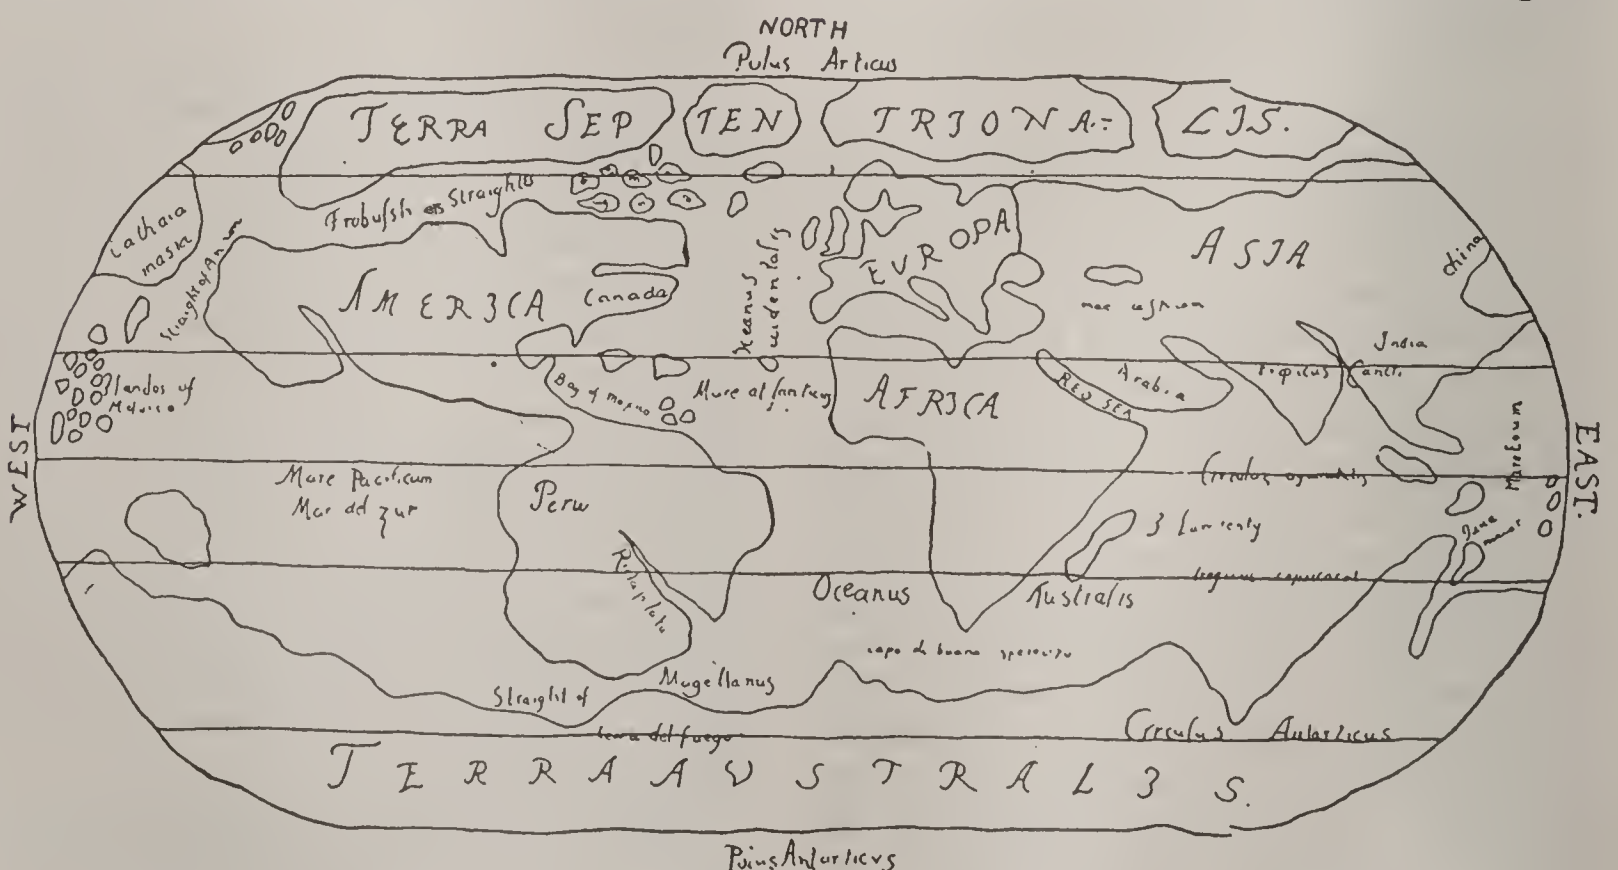 NORTH
Polus Articus
TERRA SEP TEN TRIONA= LIS.
Cathaia
maior
Straight of Anian
Frobusshers Straights
AMERICA
Canada
Occanus
occidentalis
EVROPA
ASIA
China
mar caspium
India
Ilandos of
Maluco
Bay of mexico
Mare atlanticus
AFRICA
RED SEA
Arabia
Tropicus Cancri
Mare Eoum
WEST
EAST.
Mare Pacificum
Mar del zur
Peru
Circulus
Riodaplata
S Laurenty
Java
maior
Oceanus Australis
capo de buona speranza
Straight of Magellanus
terra del fuego
Circulus Antarticus
TERRA AVSTRALIS.
Polus Antarticvs